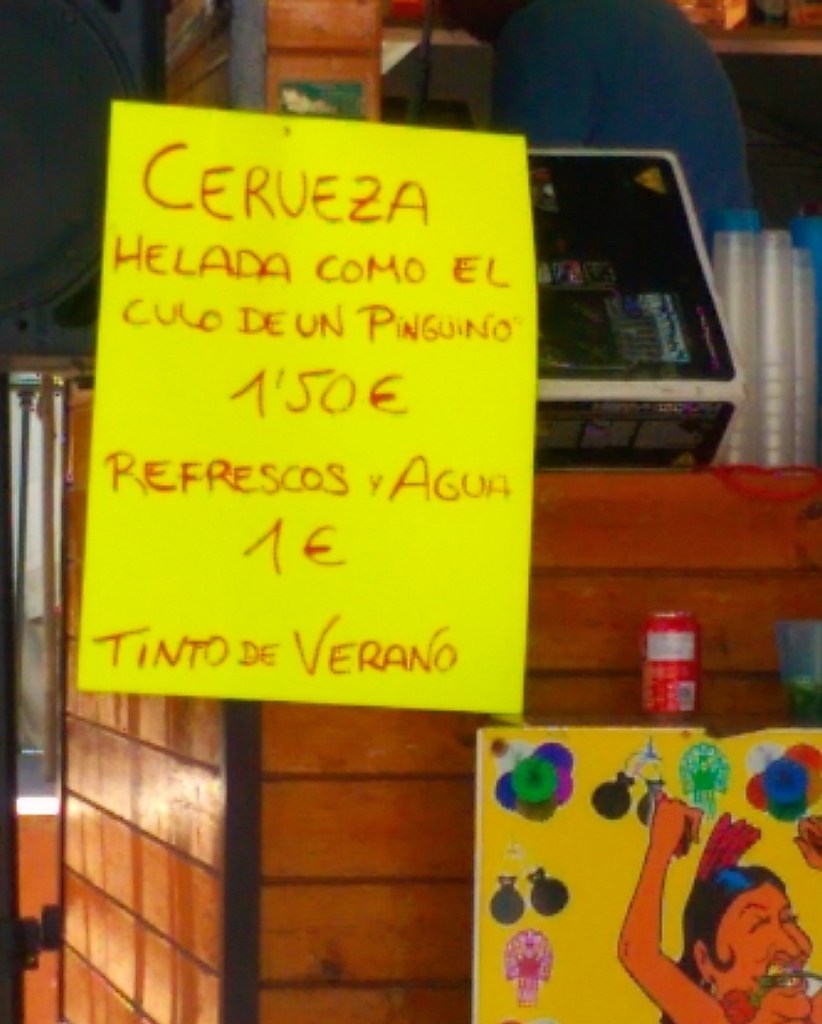 CERVEZA
HELADA COMO EL
CULO DE UN PINGUINO"
1'50€
REFRESCOS Y AGUA
1€
TINTO DE VERANO